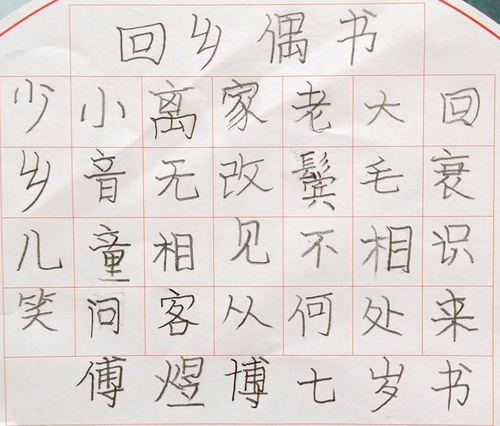 回乡偶书
少小离家老大回
乡音无改鬓毛衰
儿童相见不相识
笑问客从何处来
傅煜博七岁书